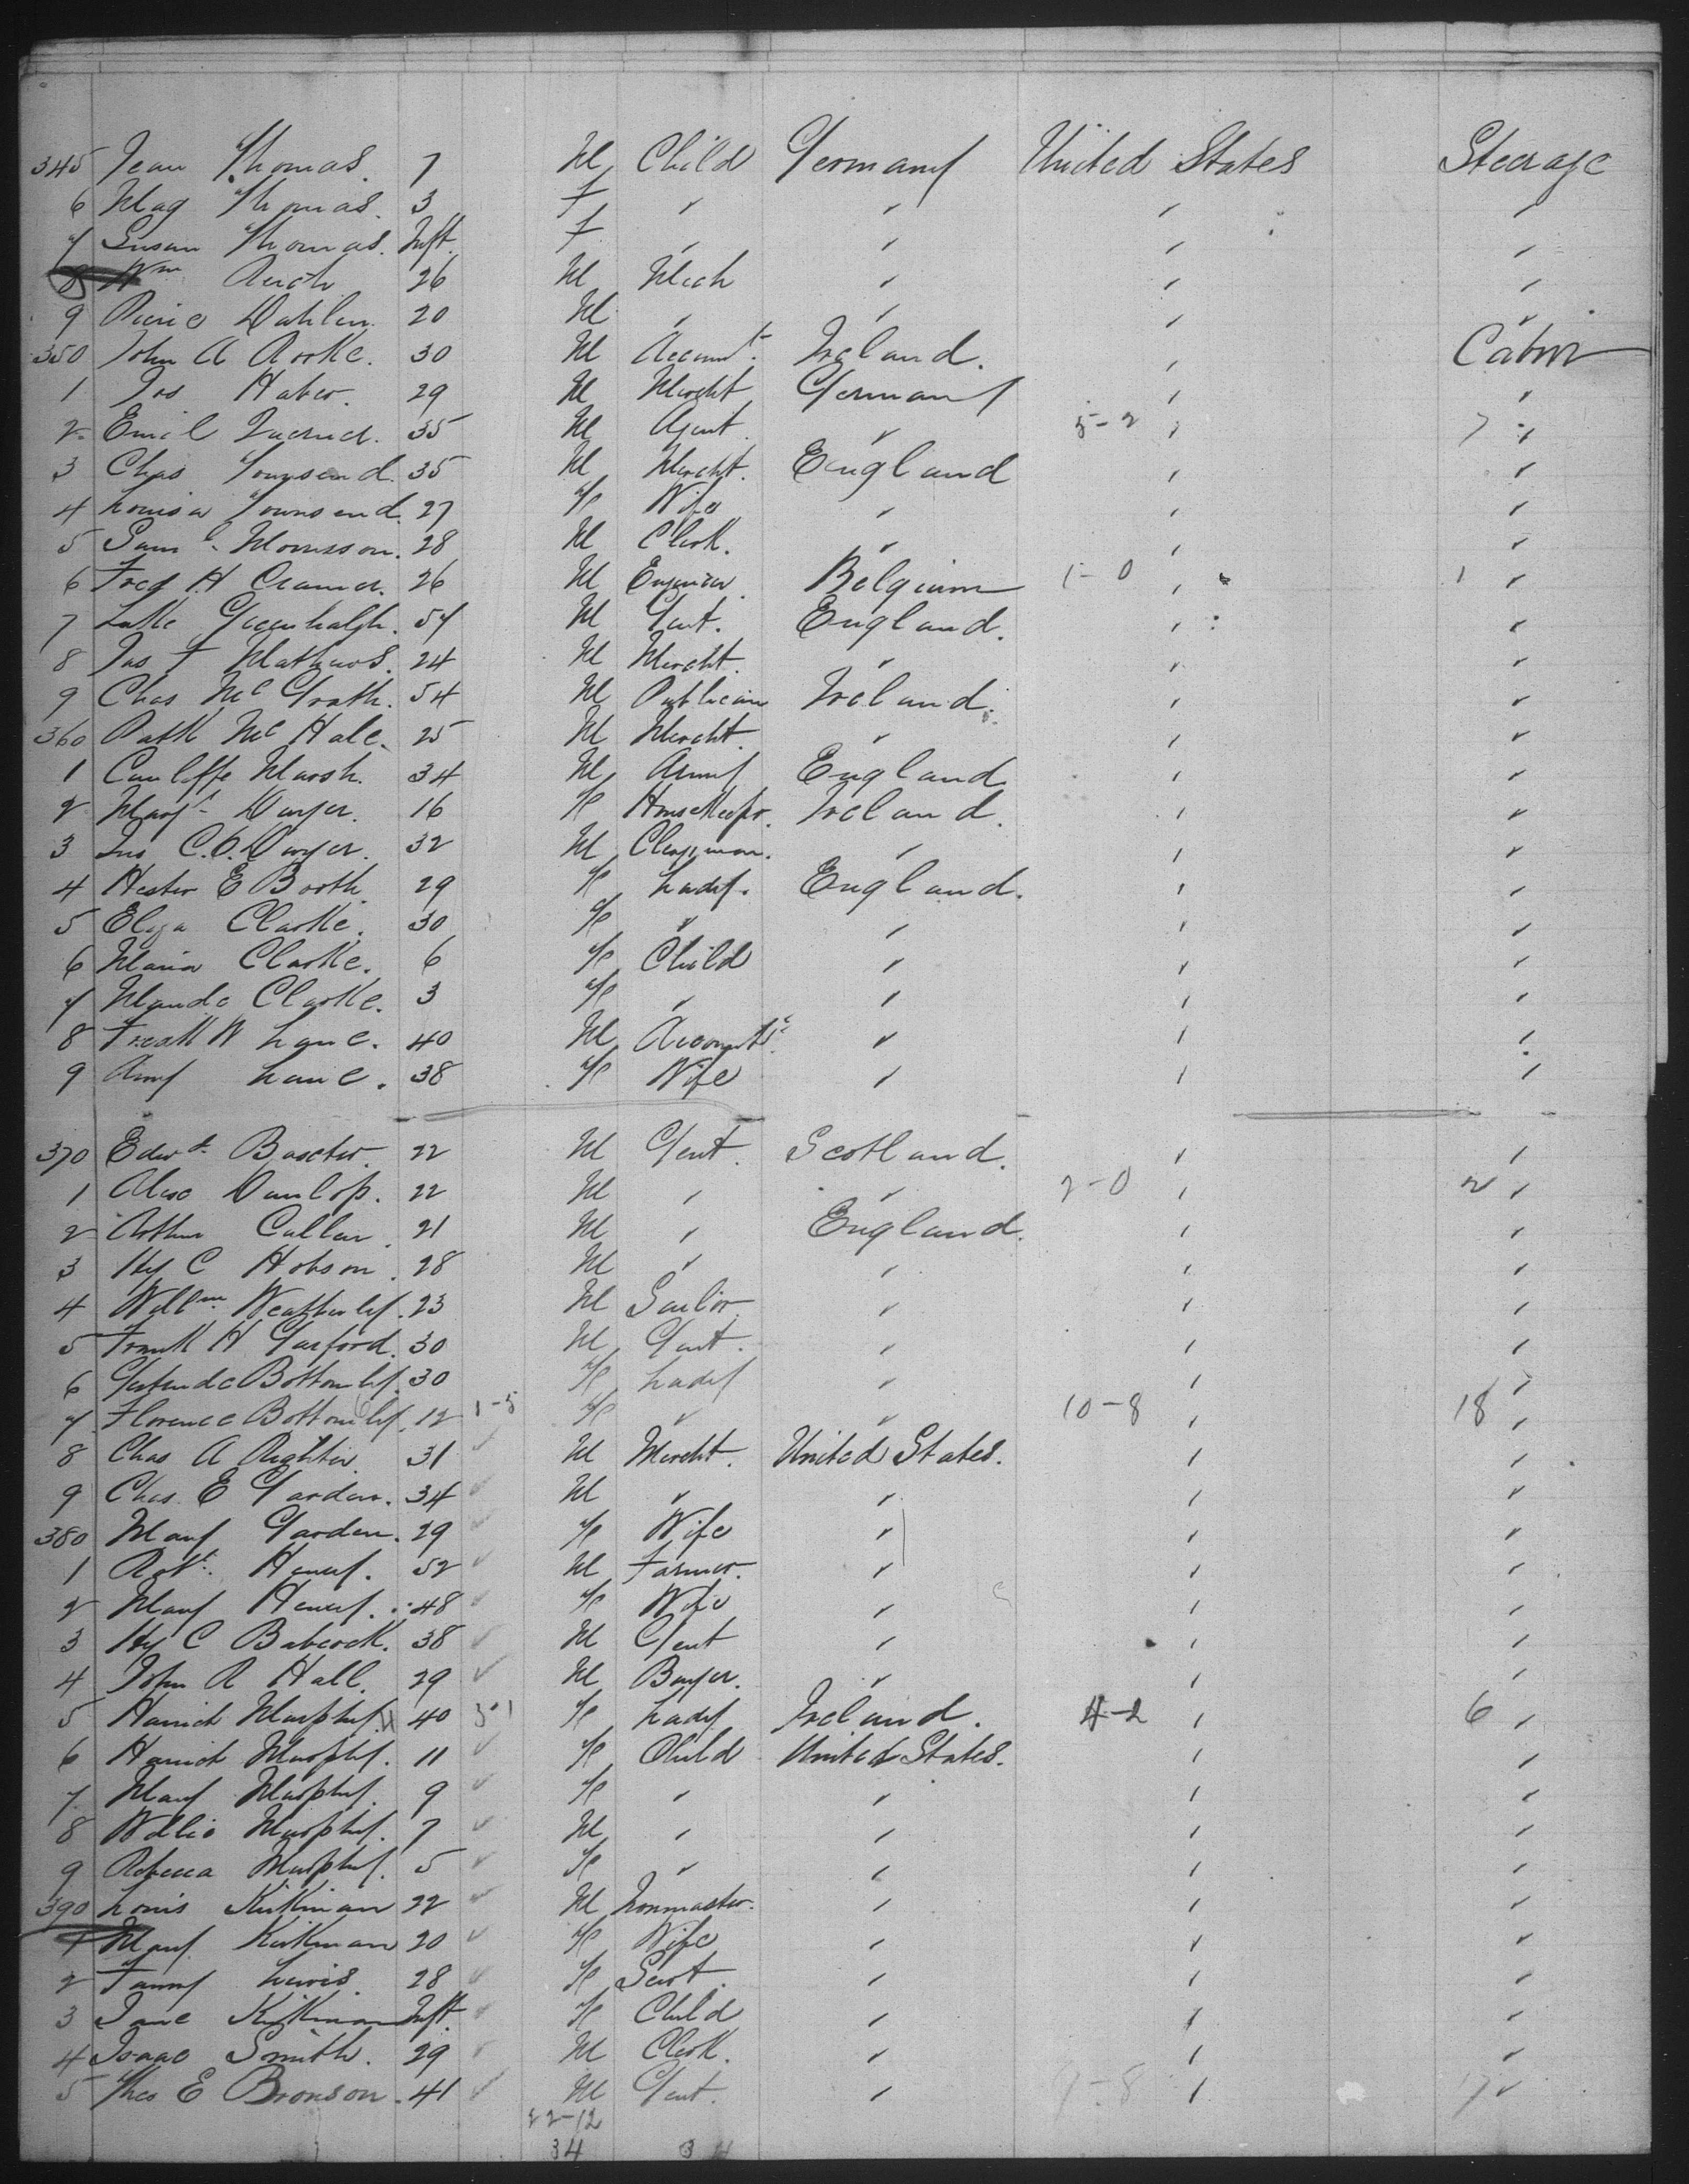 345 Jean Thomas. 7 M Child Germany United States Steerage
6 Mag Thomas. 3 f " " " "
7 Susan Thomas. Inft. f " " " "
8 Wm 26 M Mech " " "
9 Pierre Dahlen. 20 M " " " "
350 John A Rooke. 30 M Accountt. Ireland. " Cabin
1 Jos Haber. 29 M Mercht Germany " "
2 Emil 35 M Agent " 5-2 " 7 "
3 Chas Townsend. 35 M Mercht. England " "
4 Louisa Townsend. 27 F Wife " " "
5 Saml. Morrisson. 28 M Clerk. " " "
6 Fred H Cramer. 26 M Engineer. Belgium 1-0 " 1 "
7 Luke Greenhalgh. 54 M Gent. England. " "
8 Jas F Mathews. 24 M Mercht. " " "
9 Chas McGrath. 54 M Publican Ireland. " "
360 Patk McHale. 25 M Mercht. " " "
1 Cunliffe Marsh. 34 M Army England " "
2 Margt Dwyer. 16 F Housekeepr. Ireland. " "
3 Jno C.O. Dwyer. 32 M Clergyman. " " "
4 Hester E Booth. 29 F Lady. England. " "
5 Eliza Clarke. 30 F " " " "
6 Maria Clarke. 6 F Child " " "
7 Maude Clarke. 3 F " " " "
8 Fredk W Lane. 40 M Accountt. " " "
9 Amy Lane. 38 F Wife " " "
370 Edwd. Baxter. 22 M Gent. Scotland. " "
1 Alex Dunlop. 22 M " " 2-0 " 2 "
2 Arthur Cullen. 21 M " England. " "
3 Hy C Hobson. 28 M " " " "
4 Willm. Weatherley. 23 M Sailor. " " "
5 Frank H Garford. 30 M Gent. " " "
6 Gertrude Bottomley. 30 F Lady " " "
7 Florence Bottomley. 12 1-5 F " " 10-8 " 18 "
8 Chas A Righter. 31 M Mercht. United States. " "
9 Chas. E Garden. 34 M " " " "
380 Mary Garden. 29 F Wife " " "
1 Robt. Henry. 52 M Farmer. " " "
2 Mary Henry. 48 F Wife " " "
3 Hy C Babcock. 38 M Gent " " "
4 John R Hall. 29 M Buyer. " " "
5 Harriet Murphy. 40 3-1 F Lady Ireland. 4-2 " 6 "
6 Harriet Murphy. 11 F Child United States. " "
7 Mary Murphy. 9 F " " " "
8 Willie Murphy. 7 M " " " "
9 Rebecca Murphy. 5 F " " " "
390 Louis Kirkman 22 M Ironmaster. " " "
1 Mary Kirkman 20 F Wife " " "
2 Fanny Lewis. 28 F Servt. " " "
3 Jane Kirkman Inft. F Child " " "
4 Isaac Smith. 29 M Clerk. " " "
5 Thes E Bronson. 41 M Gent. " 9-8 " 17 "
22-12
34 34